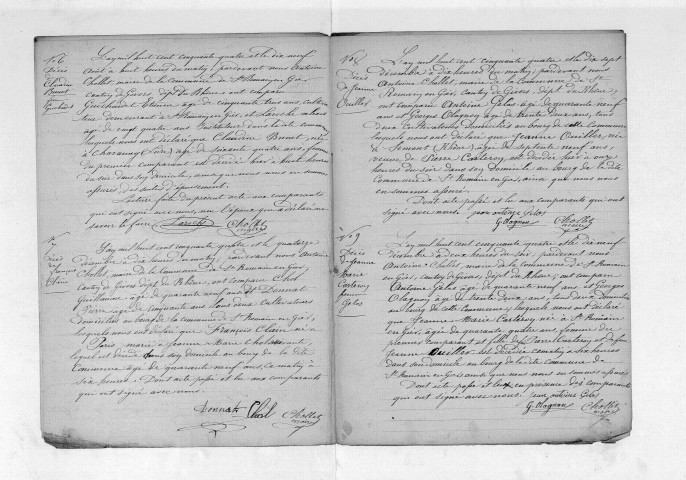 No 6
Décès
Claudine
Bonnet
L'an mil huit cent cinquante quatre et le dix neuf
Août à huit heures du matin, pardevant nous Antoine
Chollet, maire de la commune de St Romain en Gier,
canton de Givors, dépt du Rhône, ont comparu
Étienne, âgé de cinquante trois ans, cultiva
teur demeurant à St Romain en Gier, et Laroche
âgé de vingt quatre ans Instituteur dans la dite commune
lesquels nous ont déclaré que Claudine Bonnet, née
à Chavanay (Loire) âgée de soixante quatre ans, femme
du premier comparant est décédée hier à huit heures
du soir dans son domicile, ainsi que nous nous en sommes
assurés.
Lecture faite du présent acte aux comparants
qui ont signé avec nous,
savoir le faire. Laroche Chollet
maire
No 7
Décès
de François
Clain
L'an mil huit cent cinquante quatre et le quatorze
décembre à dix heures du matin, pardevant nous Antoine
Chollet, maire de la commune de St Romain en Gier,
canton de Givors, dépt du Rhône, ont comparu Chol
Guillaume âgé de quarante neuf ans et Donnat
Pierre âgé de cinquante ans, tous deux cultivateurs
domiciliés au bourg de la commune de St Romain en Gier,
lesquels nous ont déclaré que François Clain né à
Paris, marié à Jeanne Marie
lequel est décédé dans son domicile au bourg de la dite
commune âgé de quarante neuf ans, ce matin à
six heures. Dont acte après et lu aux comparants
qui ont signé avec nous.
Donnat Chol Chollet
maire
No 8
Décès
de Jeanne
Ovillet
L'an mil huit cent cinquante quatre et le dix sept
décembre à dix heures du matin, pardevant nous
Antoine Chollet, maire de la Commune de St
Romain en Gier, canton de Givors, dépt du Rhône,
ont comparu Antoine Gelas, âgé de quarante neuf
ans et Georges Olagnon âgé de trente deux ans, tous
deux domiciliés au bourg de cette Commune
lesquels nous ont déclaré que Jeanne Ovillet, née
à (Rhône) âgée de septante neuf ans,
veuve de Pierre Carteron est décédée hier à onze
heures du soir dans son domicile au bourg de la dite
Commune de St Romain en Gier, ainsi que nous nous
en sommes assurés.
Dont acte après et lu aux comparants qui ont
signé avec nous. Jean antoine Gelas
G. Olagnon Chollet
maire
No 9
Décès
de Jeanne
Marie
Carteron
femme
Gelas
L'an mil huit cent cinquante quatre et le dix neuf
décembre à deux heures du soir, pardevant nous
Antoine Chollet, maire de la commune de St Romain
en Gier, canton de Givors, dépt du Rhône, ont comparu
Antoine Gelas âgé de quarante neuf ans, et Georges
Olagnon âgé de trente deux ans, tous deux domiciliés
au bourg de cette Commune, lesquels nous ont déclaré
que Jeanne Marie Carteron, née à St Romain
en Gier, âgée de quarante quatre ans, femme du
premier comparant et fille de Pierre Carteron et de feue
Jeanne Ovillet est décédée ce matin à six heures
dans son domicile au bourg de la dite commune de
St Romain en Gier, ainsi que nous nous en sommes assurés.
Dont acte après et lu en présence des comparants
qui ont signé avec nous. Jean antoine Gelas
G. Olagnon Chollet
maire